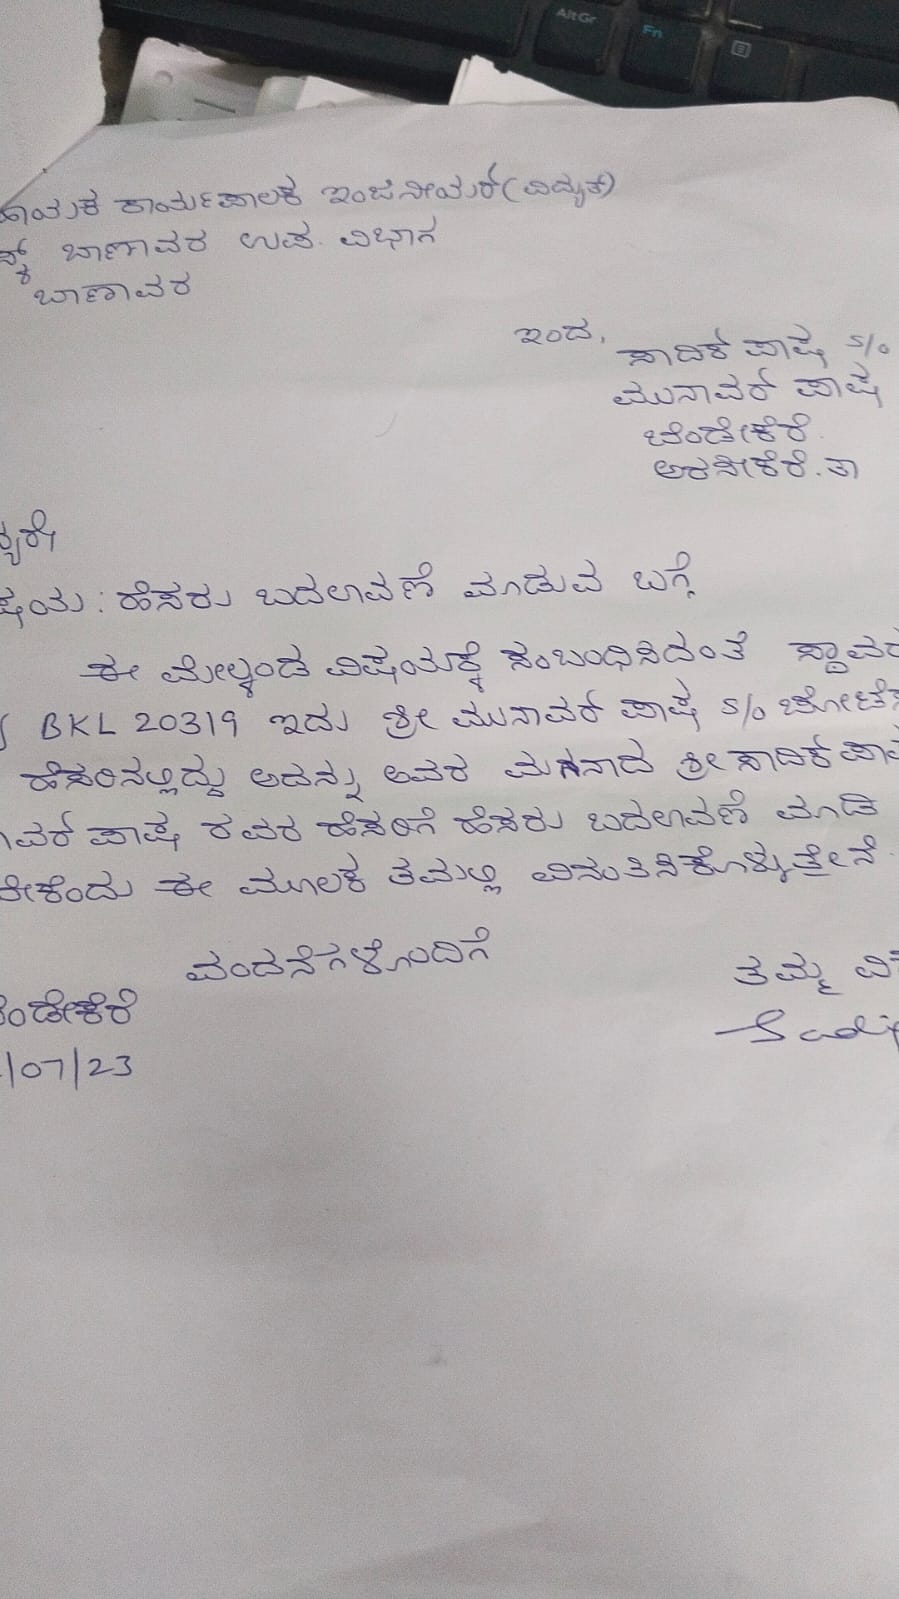 AltGr
Fn
ಸಹಾಯಕ ಕಾರ್ಯಪಾಲಕ ಇಂಜಿನೀಯರ್ (ವಿದ್ಯುತ್)
ಬಾಣಾವರ ಉಪ. ವಿಭಾಗ
ಬಾಣಾವರ
ಇಂದ,
ಸಾದಿಕ್ ಪಾಷ s/o
ಮುನಾವರ್ ಪಾಷ
ಬೆಂಡೇಕೆರೆ
ಅರಸೀಕೆರೆ. ತಾ
ವಿಷಯ : ಹೆಸರು ಬದಲಾವಣೆ ಮಾಡುವ ಬಗ್ಗೆ
ಈ ಮೇಲ್ಕಂಡ ವಿಷಯಕ್ಕೆ ಸಂಬಂಧಿಸಿದಂತೆ ಸ್ಥಾವರ
BKL 20319 ಇದು ಶ್ರೀ ಮುನಾವರ್ ಪಾಷ s/o
ಹೆಸರಿನಲ್ಲಿದ್ದು ಅದನ್ನು ಅವರ ಮಗನಾದ ಶ್ರೀ ಸಾದಿಕ್ ಪಾಷ
ಪಾಷ ರವರ ಹೆಸರಿಗೆ ಹೆಸರು ಬದಲಾವಣೆ ಮಾಡಿ
ಈ ಮೂಲಕ ತಮ್ಮಲ್ಲಿ ವಿನಂತಿಸಿಕೊಳ್ಳುತ್ತೇನೆ.
ವಂದನೆಗಳೊಂದಿಗೆ
ತಮ್ಮ ವಿ
ಬೆಂಡೇಕೆರೆ
/07/23